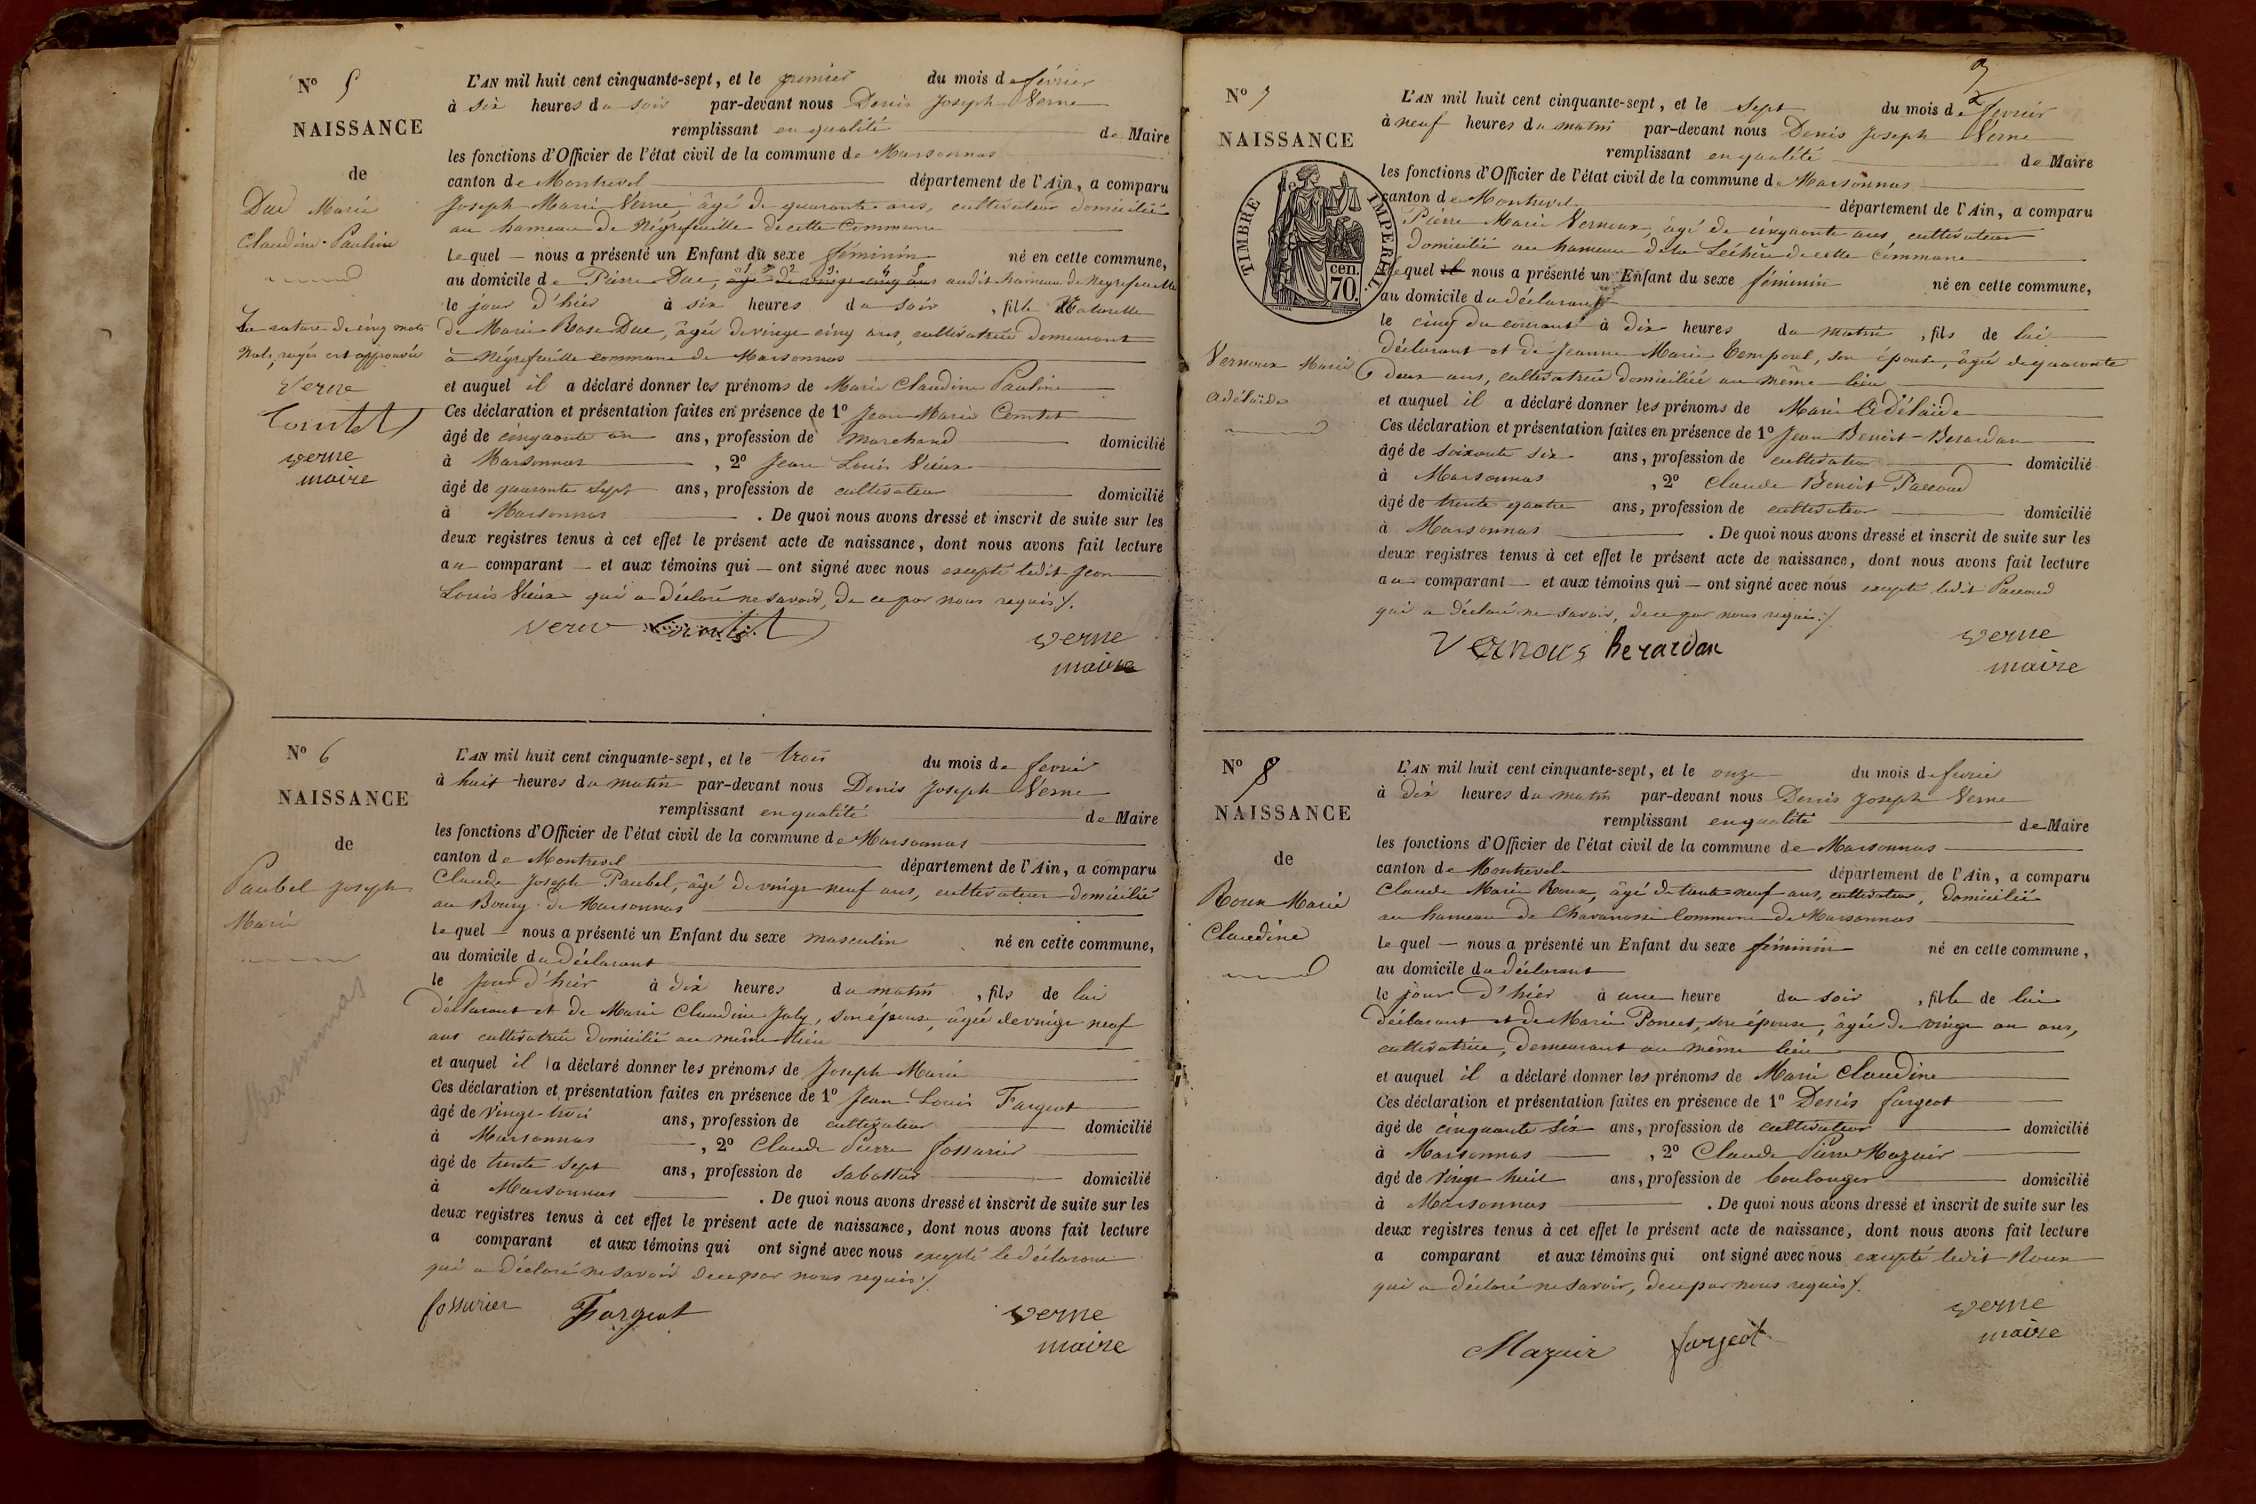 N° 5
NAISSANCE
de
Duc Marie
Claudine Pauline
La rature de cinq mots
nuls, rayés est approuvée
Verne
Comtet
verne
maire
L'AN mil huit cent cinquante-sept, et le premier du mois de février
à six heures du soir par-devant nous Denis Joseph Verne
remplissant en qualité de Maire
les fonctions d'Officier de l'état civil de la commune de Marsonnas
canton de Montrevel département de l'Ain, a comparu
Joseph Marie Verne âgé de quarante ans, cultivateur domicilié
au hameau de Négrefeuille de cette Commune
Lequel nous a présenté un Enfant du sexe féminin né en cette commune,
au domicile de Pierre Duc, âgé de vingt cinq ans audit hameau de Negrefeuille
le jour d'hier à six heures du soir, fille Naturelle
de Marie Rose Duc, âgée de vingt cinq ans, cultivatrice demeurant
à Négrefeuille commune de Marsonnas
et auquel il a déclaré donner les prénoms de Marie Claudine Pauline
Ces déclaration et présentation faites en présence de 1° Jean Marie Comtet
âgé de cinquante un ans, profession de marchand domicilié
à Marsonnas, 2° Jean Louis Vieux
âgé de quarante sept ans, profession de cultivateur domicilié
à Marsonnas. De quoi nous avons dressé et inscrit de suite sur les
deux registres tenus à cet effet le présent acte de naissance, dont nous avons fait lecture
au comparant et aux témoins qui ont signé avec nous excepté ledit Jean
Louis Vieux qui a déclaré ne savoir, de ce par nous requis ./.
Verne Comtet verne
maire
N° 6
NAISSANCE
de
Paubel Joseph
Marie
Marsonnas
L'AN mil huit cent cinquante-sept, et le trois du mois de fevrier
à huit heures du matin par-devant nous Denis Joseph Verne
remplissant en qualité de Maire
les fonctions d'Officier de l'état civil de la commune de Marsonnas
canton de Montrevel département de l'Ain, a comparu
Claude Joseph Paubel, âgé de vingt neuf ans, cultivateur domicilié
au Bourg de Marsonnas
Lequel nous a présenté un Enfant du sexe masculin né en cette commune,
au domicile du déclarant
le jour d'hier à dix heures du matin, fils de lui
déclarant et de Marie Claudine Joly, son épouse, âgée de vingt neuf
ans cultivatrice domiciliée au même lieu
et auquel il a déclaré donner les prénoms de Joseph Marie
Ces déclaration et présentation faites en présence de 1° Jean Louis Fargeot
âgé de vingt-trois ans, profession de cultivateur domicilié
à Marsonnas, 2° Claude Pierre fossurier
âgé de trente sept ans, profession de sabottier domicilié
à Marsonnas. De quoi nous avons dressé et inscrit de suite sur les
deux registres tenus à cet effet le présent acte de naissance, dont nous avons fait lecture
a comparant et aux témoins qui ont signé avec nous excepté le déclarant
qui a déclaré ne savoir de ce par nous requis ./.
fossurier Fargeot verne
maire
3
N° 7
NAISSANCE
TIMBRE IMPERIAL
70 cen.
Vernoux Marie
adélaïde
L'AN mil huit cent cinquante-sept, et le sept du mois de fevrier
à neuf heures du matin par-devant nous Denis Joseph Verne
remplissant en qualité de Maire
les fonctions d'Officier de l'état civil de la commune de Marsonnas
canton de Montrevel département de l'Ain, a comparu
Pierre Marie Vernoux, âgé de cinquante ans, cultivateur
domicilié au hameau de la Léchère de cette Commune
Lequel nous a présenté un Enfant du sexe féminin né en cette commune,
au domicile du déclarant
le cinq du courant à dix heures du matin, fils de lui
déclarant et de Jeanne Marie Temporal, son épouse, âgée de quarante
deux ans, cultivatrice domiciliée au même lieu
et auquel il a déclaré donner les prénoms de Marie Adélaïde
Ces déclaration et présentation faites en présence de 1° Jean Benoit Berardan
âgé de soixante six ans, profession de cultivateur domicilié
à Marsonnas, 2° Claude Benoit Paccoud
âgé de trente quatre ans, profession de cultivateur domicilié
à Marsonnas. De quoi nous avons dressé et inscrit de suite sur les
deux registres tenus à cet effet le présent acte de naissance, dont nous avons fait lecture
au comparant et aux témoins qui ont signé avec nous excepté ledit Paccoud
qui a déclaré ne savoir, de ce par nous requis ./.
Vernous Berardan verne
maire
N° 8
NAISSANCE
de
Roux Marie
Claudine
L'AN mil huit cent cinquante-sept, et le onze du mois de fevrier
à dix heures du matin par-devant nous Denis Joseph Verne
remplissant en qualité de Maire
les fonctions d'Officier de l'état civil de la commune de Marsonnas
canton de Montrevel département de l'Ain, a comparu
Claude Marie Roux, âgé de trente neuf ans, cultivateur, domicilié
au hameau de Chavannosse Commune de Marsonnas
Lequel nous a présenté un Enfant du sexe féminin né en cette commune,
au domicile du déclarant
le jour d'hier à une heure du soir, fille de lui
déclarant et de Marie Poncet, son épouse, âgée de vingt un ans,
cultivatrice, demeurant au même lieu
et auquel il a déclaré donner les prénoms de Marie Claudine
Ces déclaration et présentation faites en présence de 1° Denis fargeot
âgé de cinquante six ans, profession de cultivateur domicilié
à Marsonnas, 2° Claude Pierre Mazuir
âgé de vingt huit ans, profession de boulanger domicilié
à Marsonnas. De quoi nous avons dressé et inscrit de suite sur les
deux registres tenus à cet effet le présent acte de naissance, dont nous avons fait lecture
a comparant et aux témoins qui ont signé avec nous excepté ledit Roux
qui a déclaré ne savoir, de ce par nous requis ./.
Mazuir fargeot verne
maire